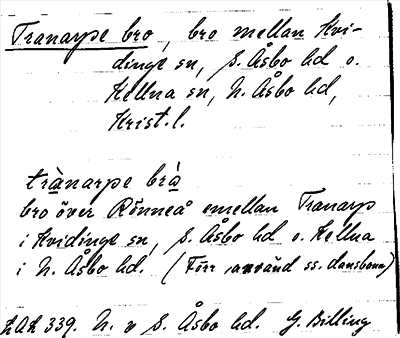 Tranarpe bro, bro mellan Kvi-
dinge sn, S. Åsbo hd o.
Källna sn, N. Åsbo hd,
Krist. l.
trànarpe brà
bro över Rönneå emellan Tranarp
i Kvidinge sn, S. Åsbo hd o. Källna
i N. Åsbo hd. (Förr använd ss. dansbana)
339. N. o S. Åsbo hd. G. Billing